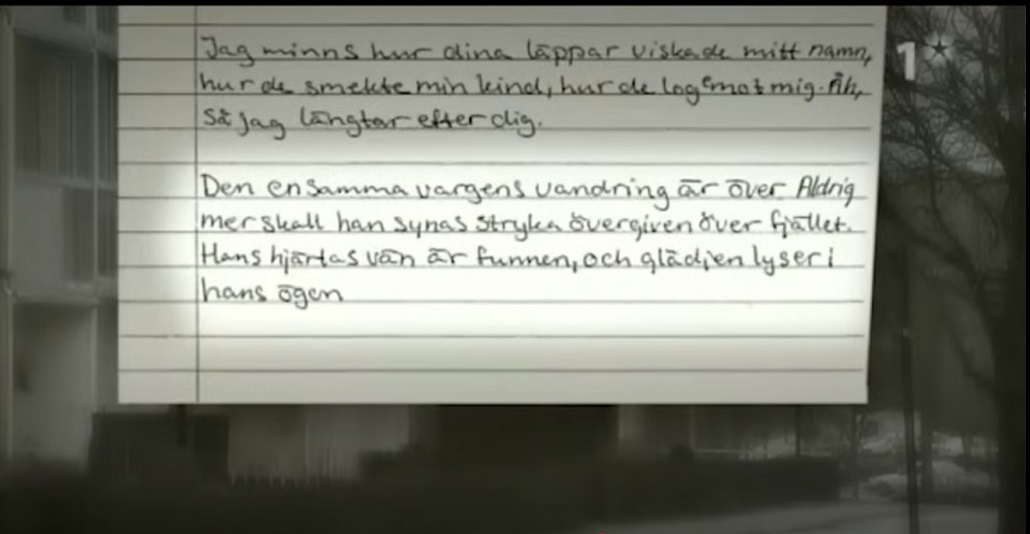 Jag minns hur dina läppar viskade mitt namn,
hur de smekte min kind, hur de log emot mig. Åh,
så jag längtar efter dig.
Den ensamma vargens vandring är över. Aldrig
mer skall han synas stryka övergiven över fjället.
Hans hjärtas vän är funnen, och glädjen lyser i
hans ögen
1